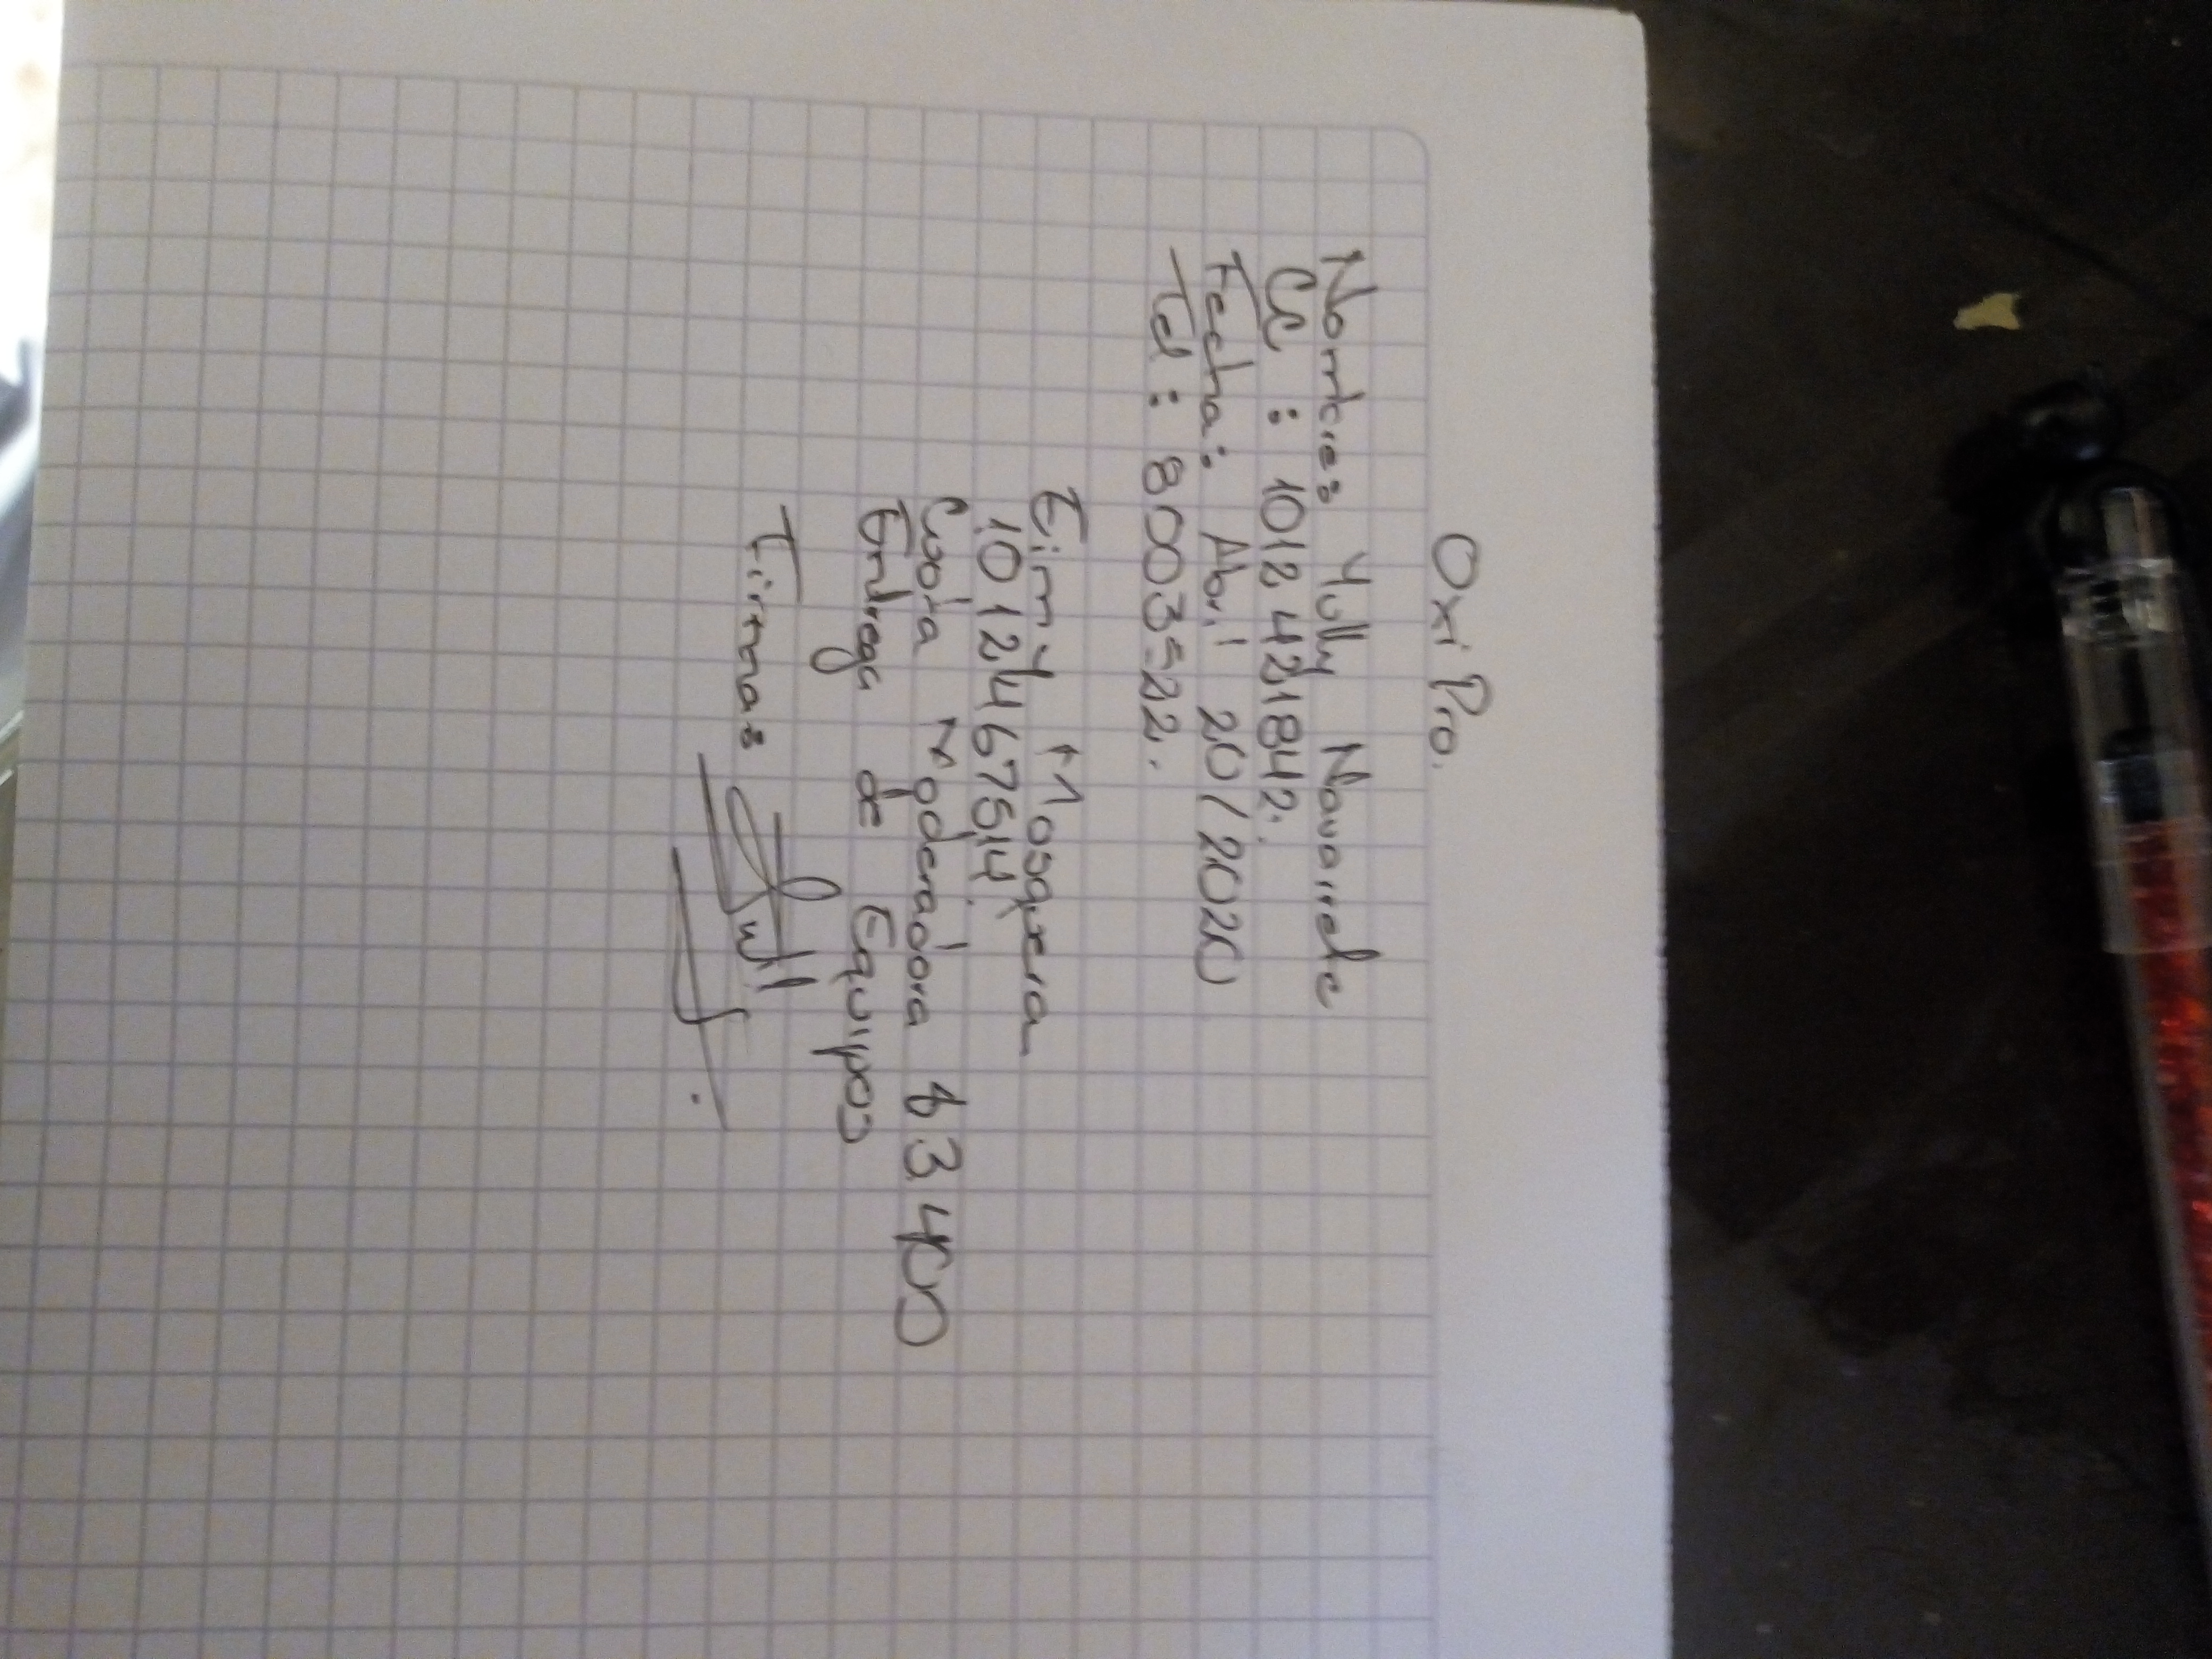 Oxi Pro.
Nombres Yully Navarrete
CC : 1012421842.
Fecha: Abril 20/2020
Tel : 8003522.
Eimy Mosquera
1012467514.
Cuota Moderadora $ 3400
Entrega de Equipos
Firmas